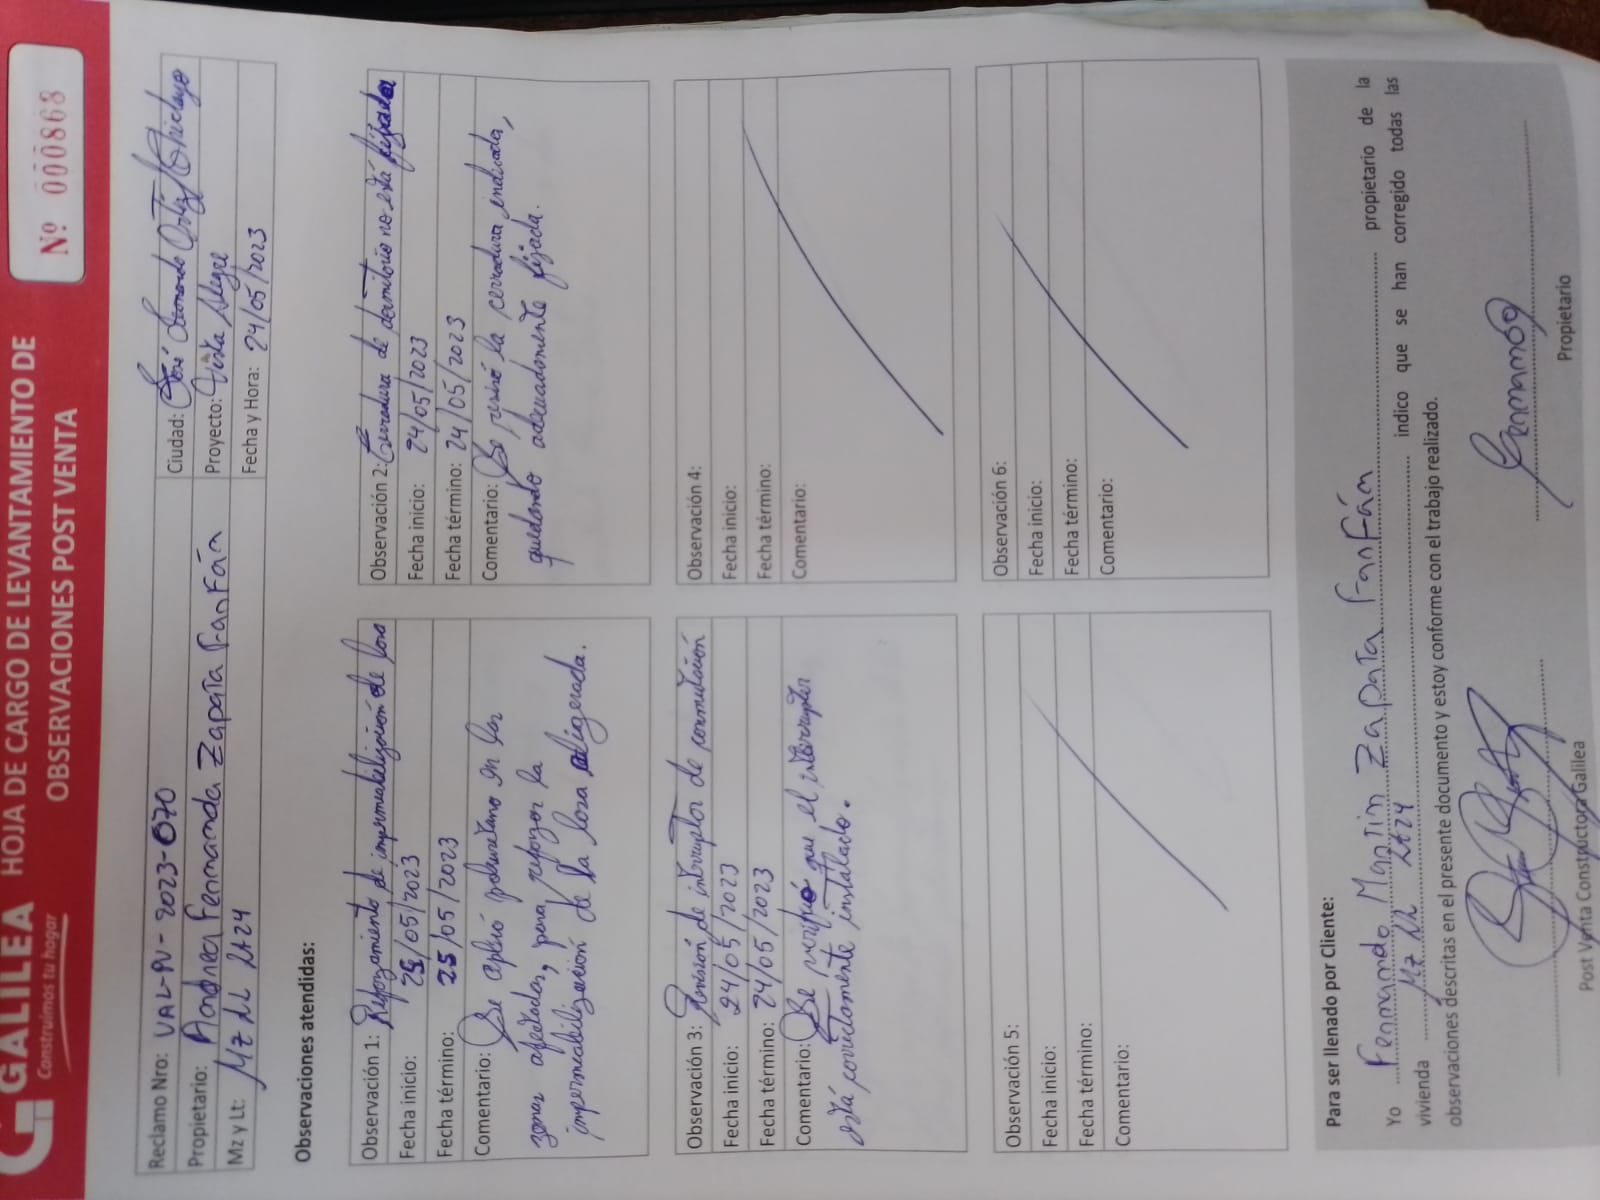 GALILEA
Construimos tu hogar
HOJA DE CARGO DE LEVANTAMIENTO DE
OBSERVACIONES POST VENTA
Nº 000868
Reclamo Nro: VAL-PV-2023-070
Ciudad: José Leonardo Ortiz/Chiclayo
Propietario: Andrea Fernanda Zapata Fanfán
Proyecto: Vista Alegre
Mz y Lt: Mz LL Lt 24
Fecha y Hora: 24/05/2023
Observaciones atendidas:
Observación 1: Reforzamiento de impermeabilización de losa
Fecha inicio: 25/05/2023
Fecha término: 25/05/2023
Comentario: Se aplicó poliuretano en las
zonas afectadas, para reforzar la
impermeabilización de la losa aligerada.
Observación 2: Cerradura de dormitorio no está fijada
Fecha inicio: 24/05/2023
Fecha término: 24/05/2023
Comentario: Se revisó la cerradura indicada,
quedando adecuadamente fijada.
Observación 3: Revisión de interruptor de conmutación
Fecha inicio: 24/05/2023
Fecha término: 24/05/2023
Comentario: Se verificó que el interruptor
está correctamente instalado.
Observación 4:
Fecha inicio:
Fecha término:
Comentario:
Observación 5:
Fecha inicio:
Fecha término:
Comentario:
Observación 6:
Fecha inicio:
Fecha término:
Comentario:
Para ser llenado por Cliente:
Yo Fernando Martin Zapata Fanfán propietario de la
vivienda Mz LL Lt 24 indico que se han corregido todas las
observaciones descritas en el presente documento y estoy conforme con el trabajo realizado.
Post Venta Constructora Galilea
Propietario